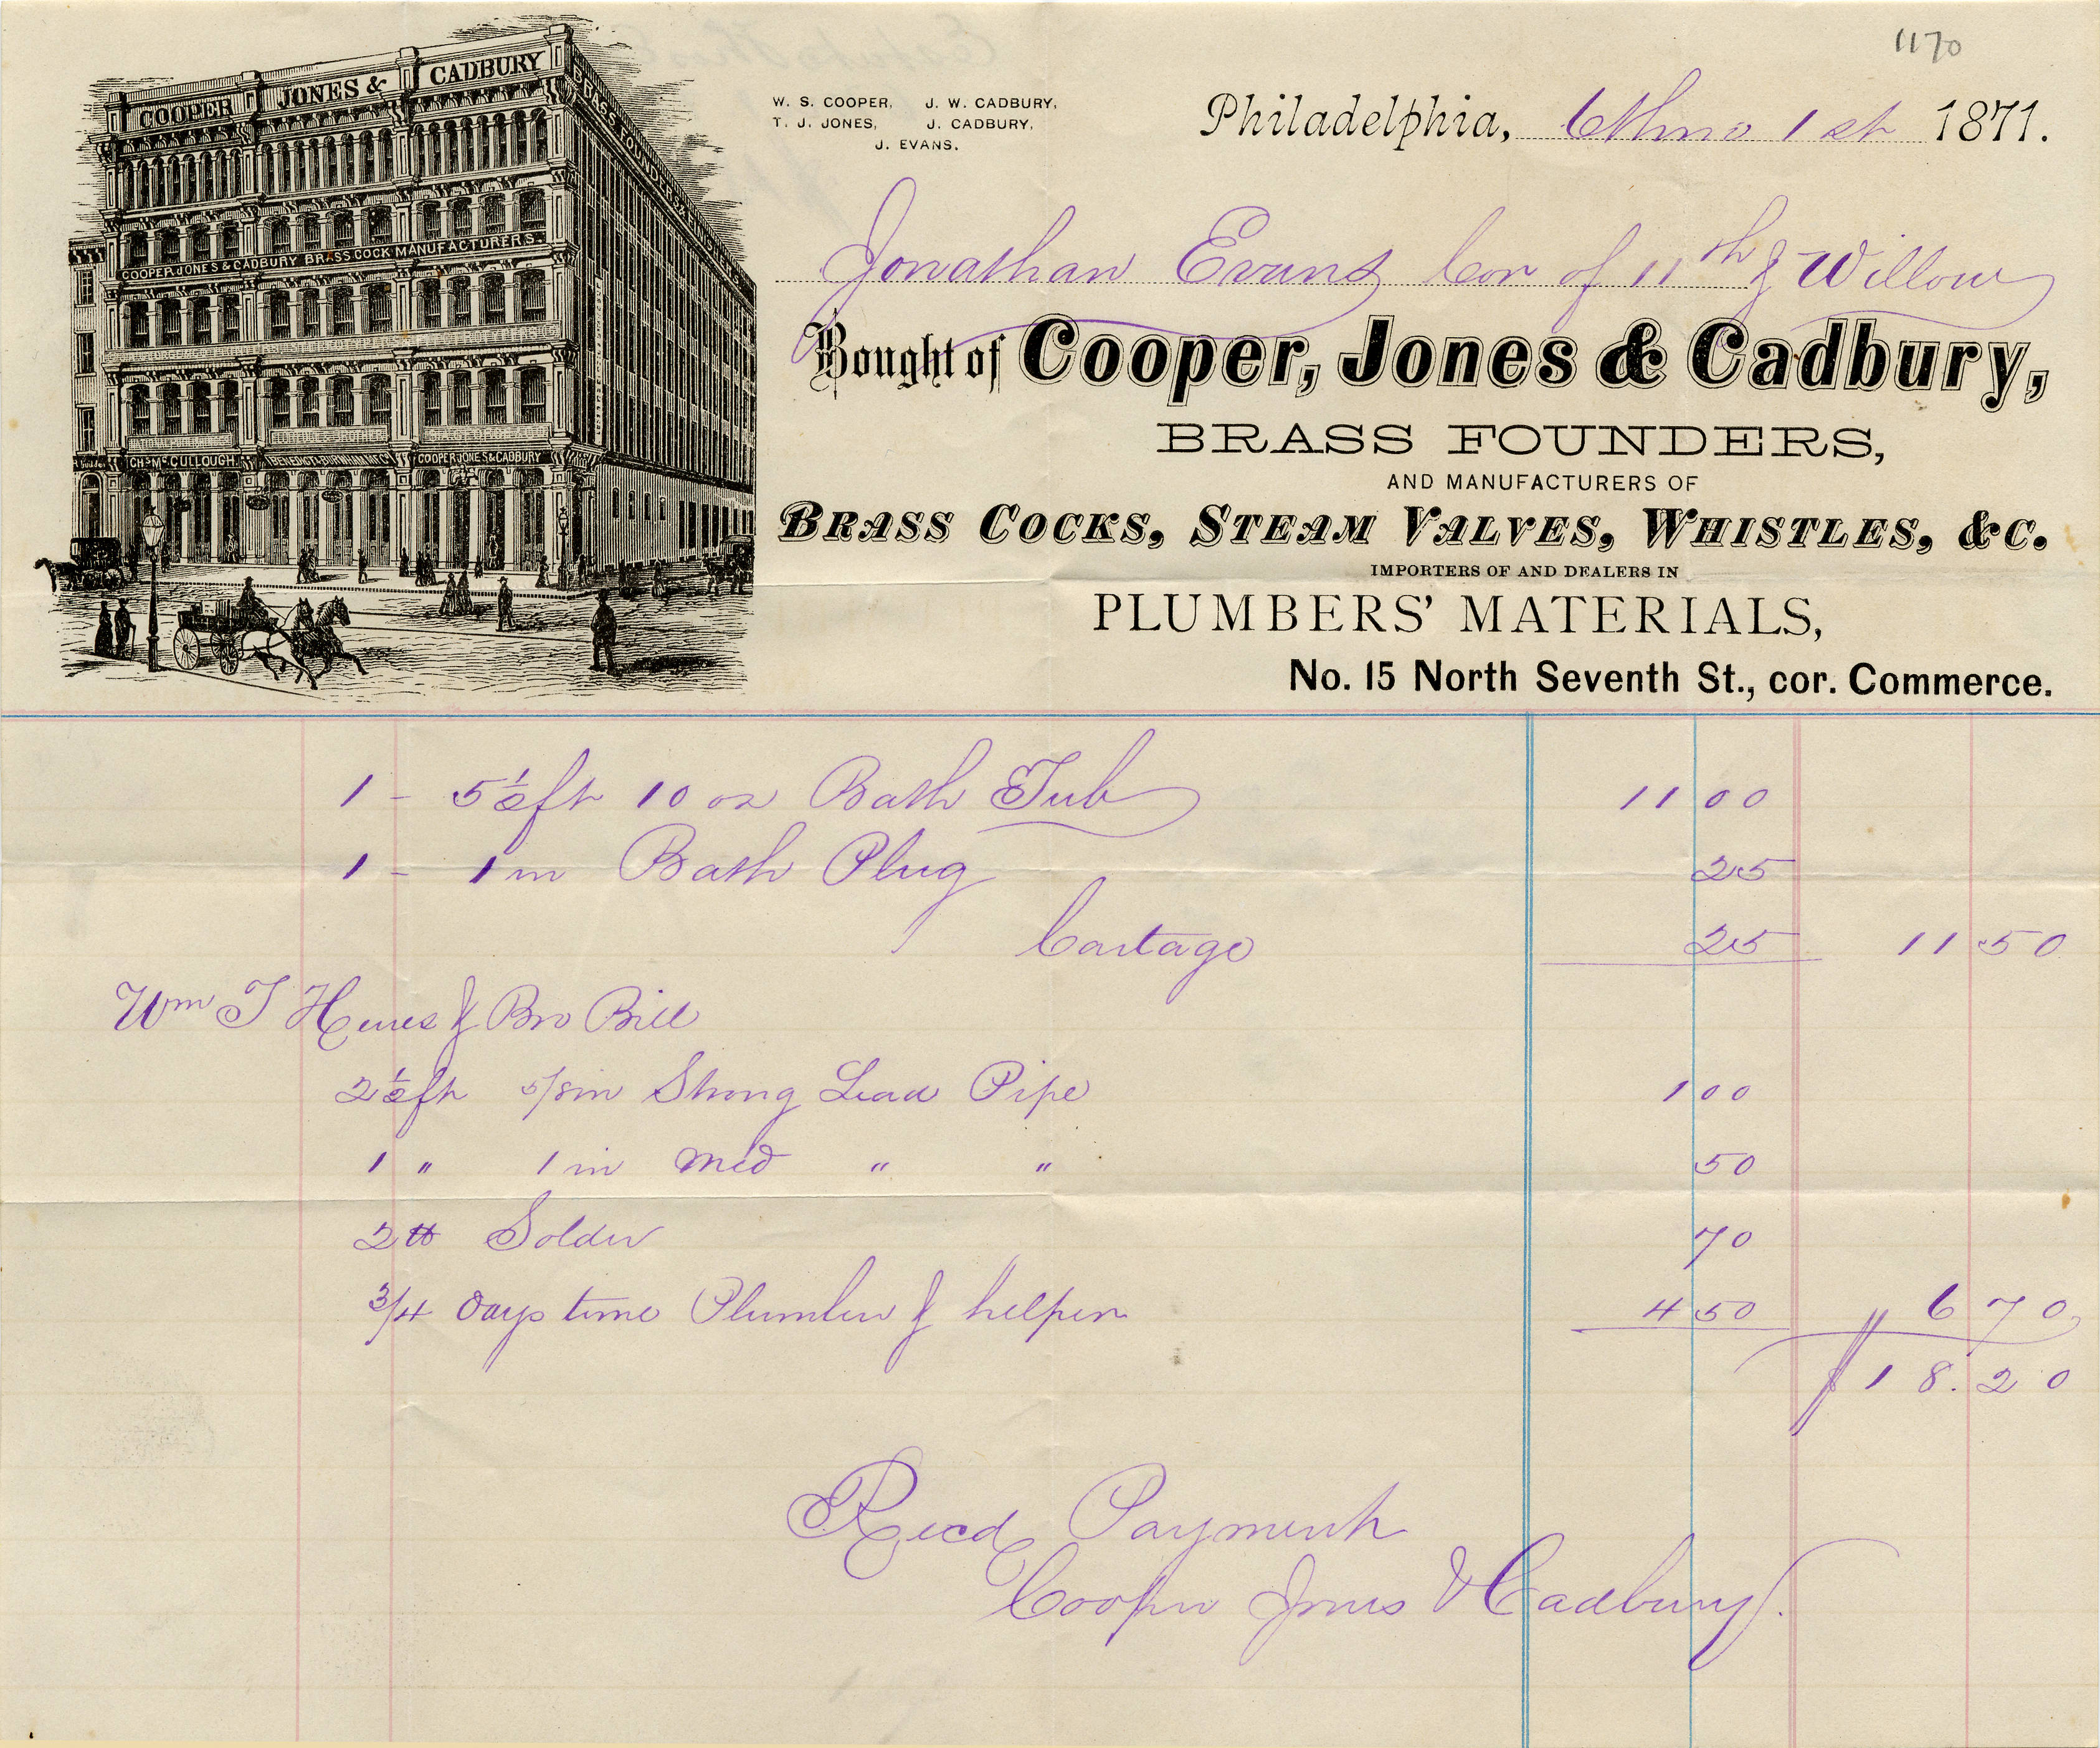 1170
COOPER JONES & CADBURY
BRASS FOUNDERS &
COOPER JONES & CADBURY BRASS COCK MANUFACTURERS.
McCULLOUGH.
COOPER JONES & CADBURY
W. S. COOPER, J. W. CADBURY,
T. J. JONES, J. CADBURY,
J. EVANS.
Philadelphia, 6th mo 1st 1871.
Jonathan Evans Cor of 11th & Willow
Bought of Cooper, Jones & Cadbury,
BRASS FOUNDERS,
AND MANUFACTURERS OF
BRASS COCKS, STEAM VALVES, WHISTLES, &C.
IMPORTERS OF AND DEALERS IN
PLUMBERS' MATERIALS,
No. 15 North Seventh St., cor. Commerce.
1 - 5½ ft 10 oz Bath Tub 11 00
1 - 1 in Bath Plug 25
Cartage 25 11 50
Wm T & Bro Bill
2½ ft 5/8 in Strong Lead Pipe 1 00
1 " 1 in Med " " 50
2 lb Solder 70
3/4 Days time Plumber & helper 4 50 6 70
$18.20
Recd Payment
Cooper Jones & Cadbury.